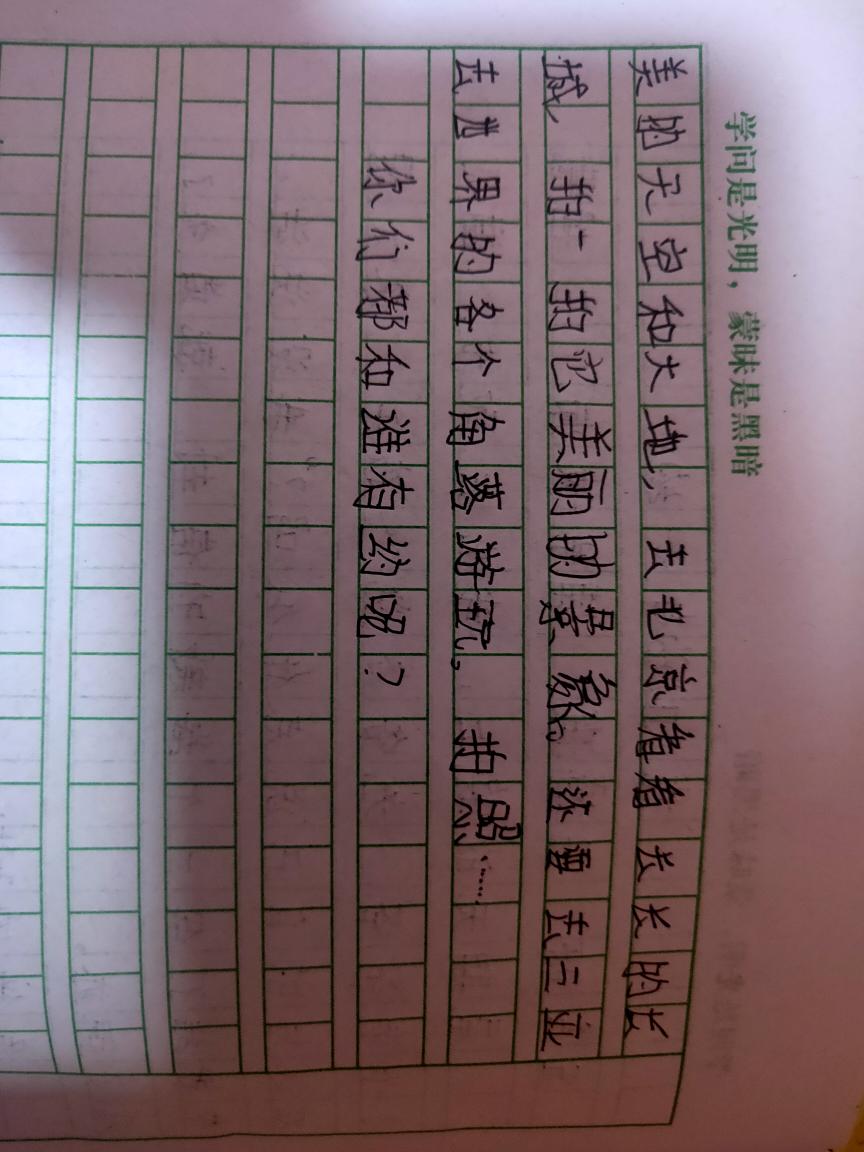 学问是光明，蒙昧是黑暗
美的天空和大地，去北京看看长长的长
城 拍一拍它美丽的景象。还要去三亚
去世界的各个角落游玩。拍照……
你们都和谁有约呢？